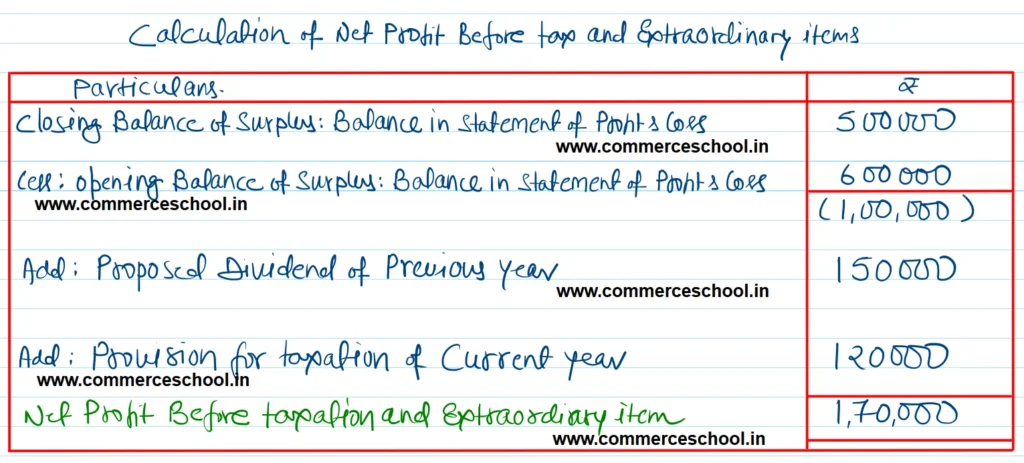 Calculation of Net Profit Before tax and Extraordinary items
Particulars. ₹
Closing Balance of Surplus: Balance in Statement of Profit & Loss 500000
www.commerceschool.in
Less: Opening Balance of Surplus: Balance in Statement of Profit & Loss 600000
www.commerceschool.in
(1,00,000)
Add: Proposed Dividend of Previous year 150000
www.commerceschool.in
Add: Provision for taxation of Current year 120000
www.commerceschool.in
Net Profit Before taxation and Extraordiary item 1,70,000
www.commerceschool.in